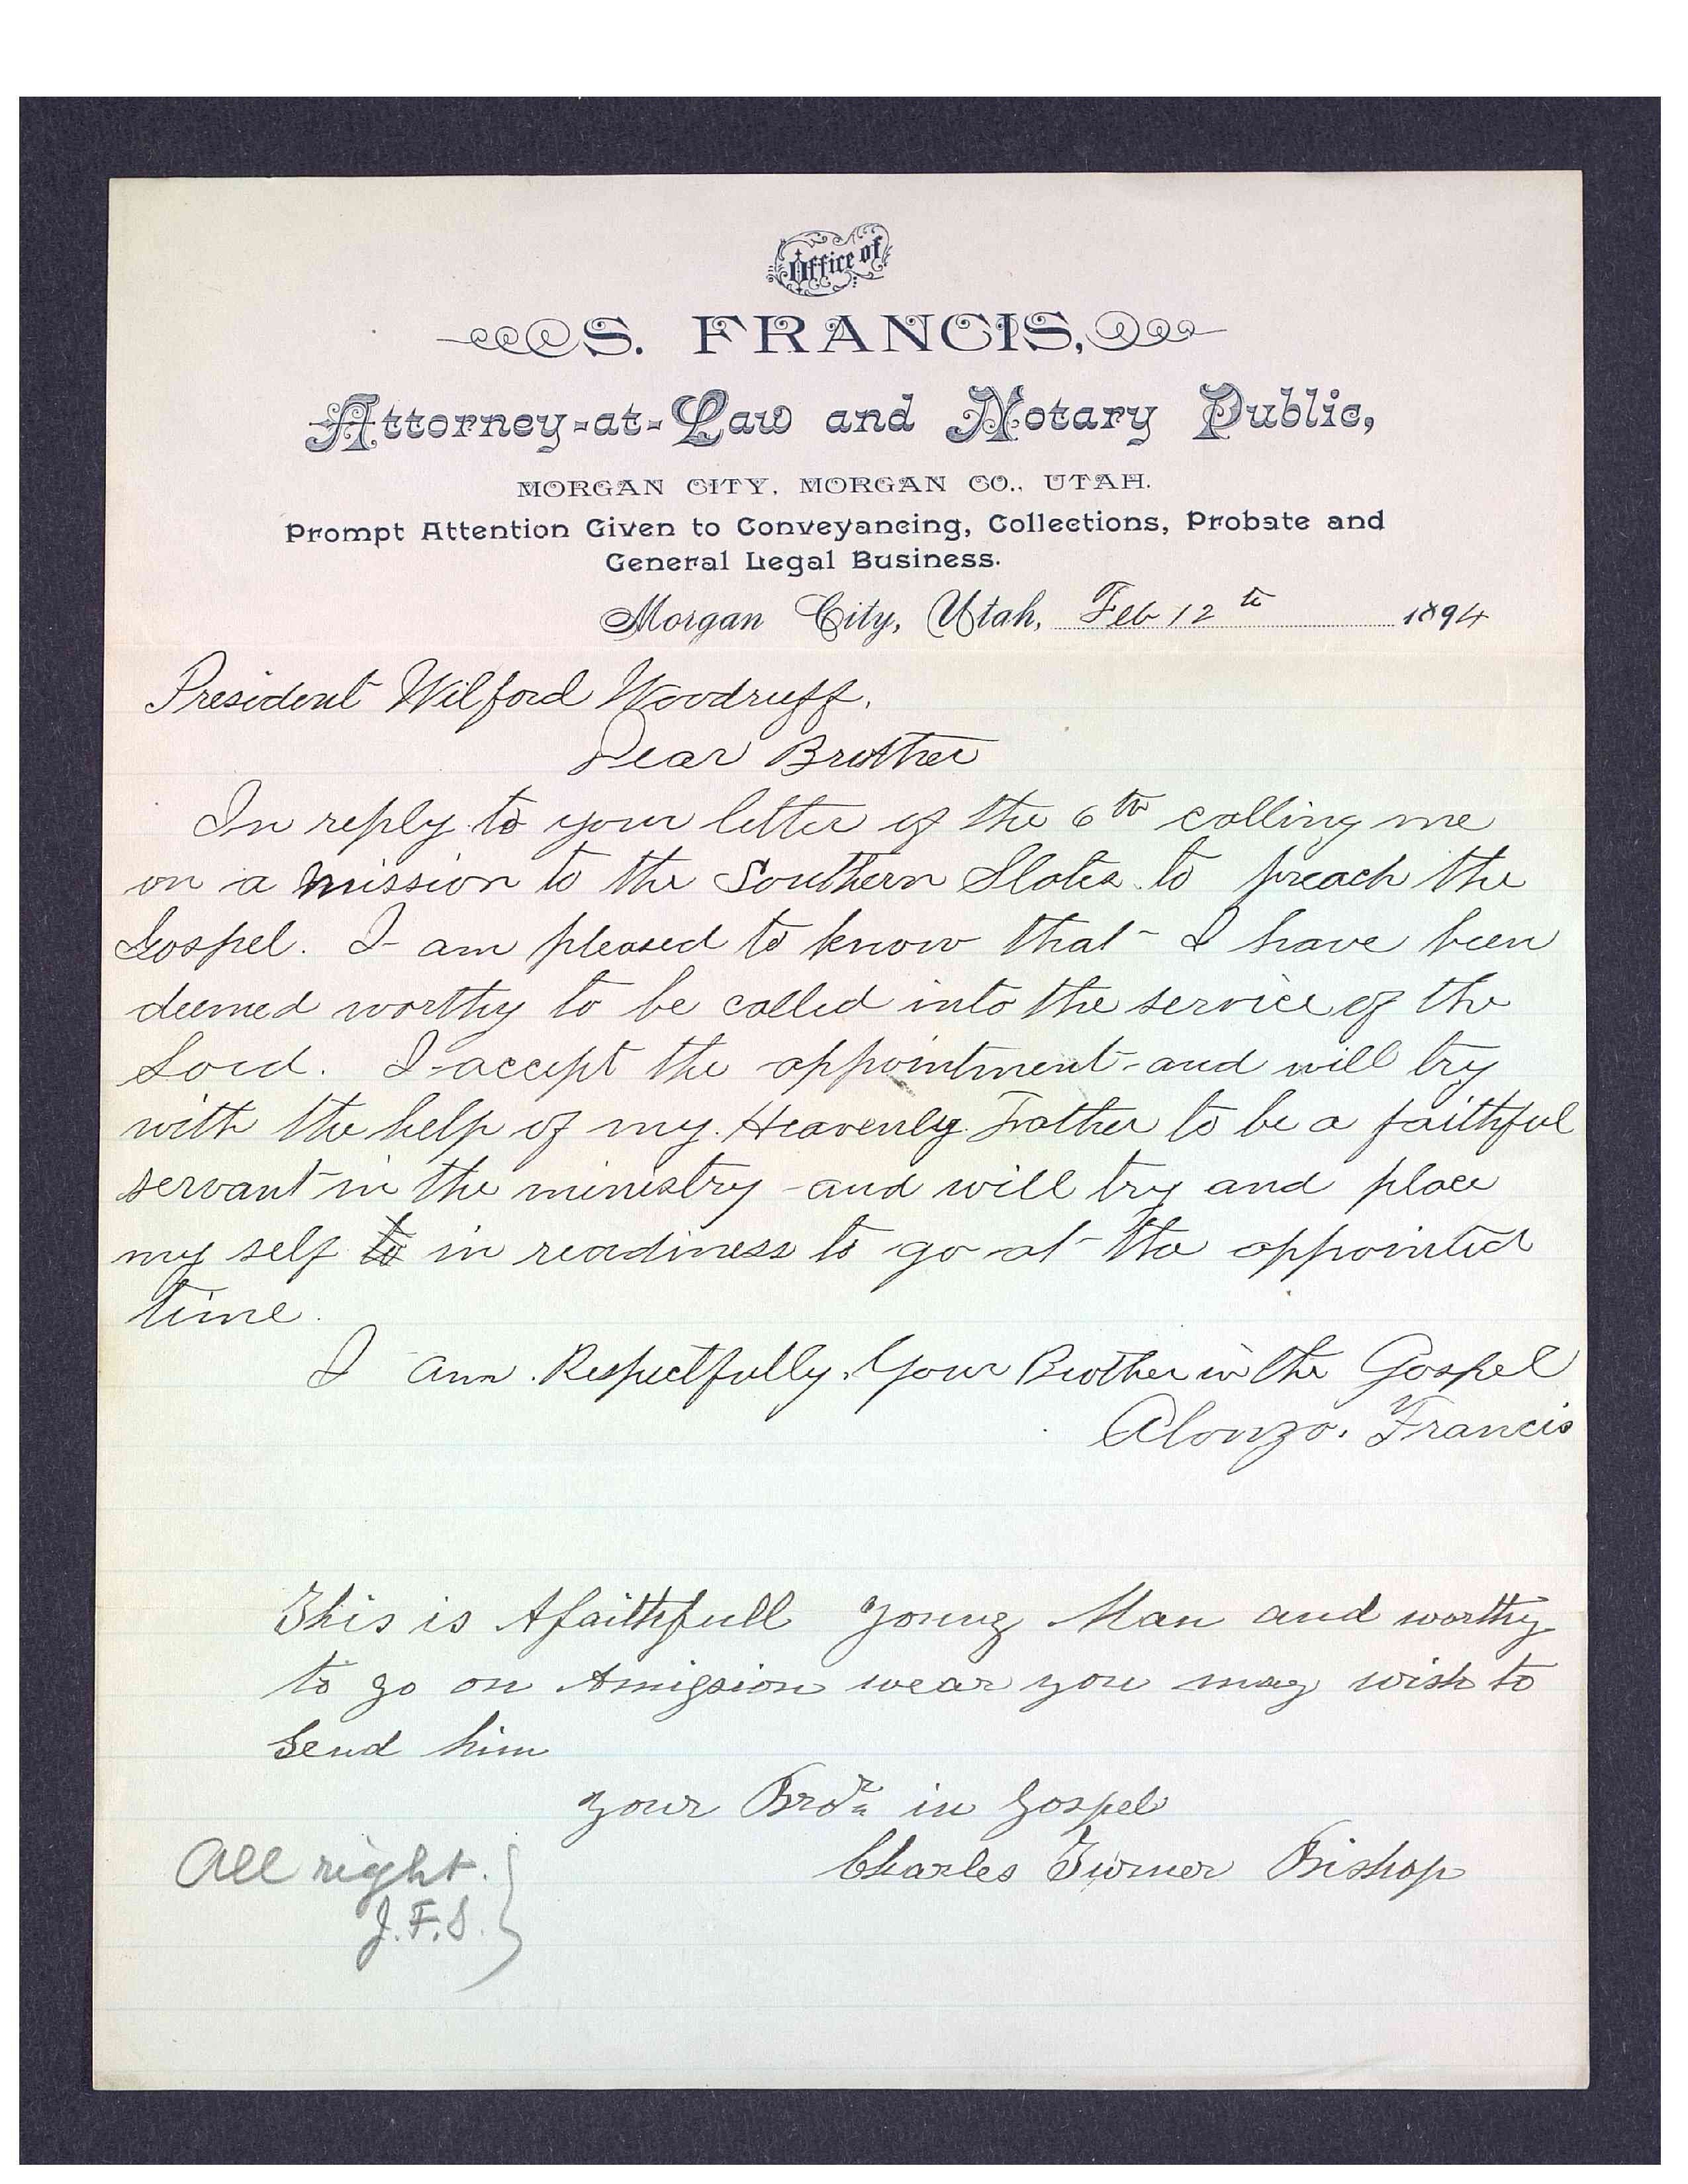 Office of
S. FRANCIS,
Attorney-at-Law and Notary Public,
MORGAN CITY, MORGAN CO., UTAH.
Prompt Attention Given to Conveyancing, Collections, Probate and
General Legal Business.
Morgan City, Utah, Feb 12th 1894
President Wilford Woodruff.
Dear Brother
In reply to your letter of the 6th calling me
on a mission to the Southern States to preach the
Gospel. I am pleased to know that I have been
deemed worthy to be called into the service of the
Lord. I accept the appointment and will try
with the help of my Heavenly Father to be a faithful
servant in the ministry and will try and place
my self to in readiness to go at the appointed
time.
I am Respectfully Your Brother in the Gospel
Alonzo. Francis
This is A faithfull Young Man and worthy
to go on A mission wear you may wish to
Send him
your Bror in Gospel
Charles Turner Bishop
All right.
J.F.S.